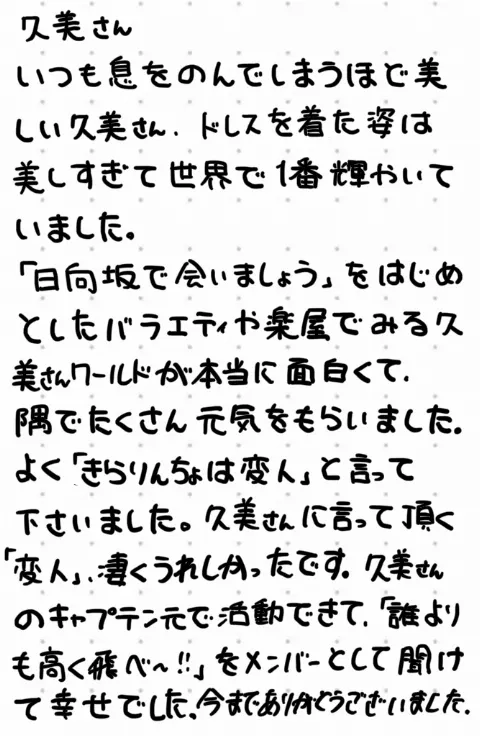 久美さん
いつも息をのんでしまうほど美
しい久美さん、ドレスを着た姿は
美しすぎて世界で1番輝やいて
いました。
「日向坂で会いましょう」をはじめ
としたバラエティや楽屋でみる久
美さんワールドが本当に面白くて、
隅でたくさん元気をもらいました。
よく「きらりんちょは変人」と言って
下さいました。久美さんに言って頂く
「変人」、凄くうれしかったです。久美さん
のキャプテン元で活動できて、「誰より
も高く飛べ〜!!」をメンバーとして聞け
て幸せでした、今までありがとうございました。